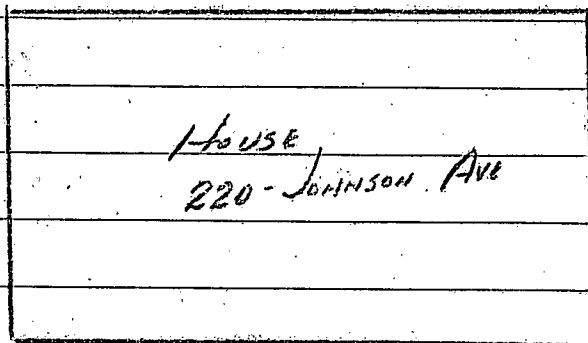 House
220 - Johnson Ave